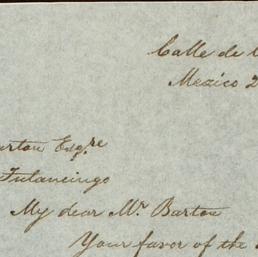 Calle de
Mexico 2
arton Esqre
Tulancingo
My dear Mr. Barton
Your favor of the